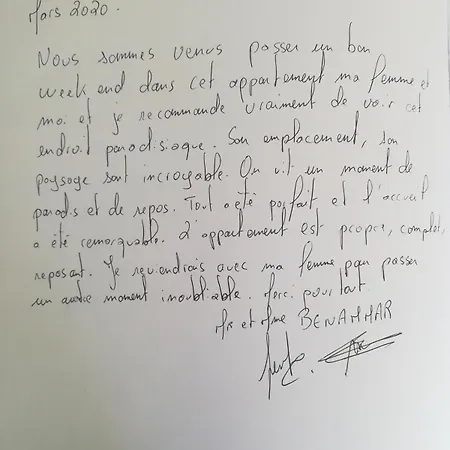 Mars 2020.
Nous sommes venus passer un bon
week end dans cet appartement ma femme et
moi et je recommande vraiment de voir cet
endroit paradisiaque. Son emplacement, son
paysage sont incroyable. On vit un moment de
paradis et de repos. Tout a été parfait et l'accueil
a été remarquable. L'appartement est propre, complet,
reposant. Je reviendrais avec ma femme pour passer
un autre moment inoubliable. Merci pour tout.
Mr et Mme BENAMMAR